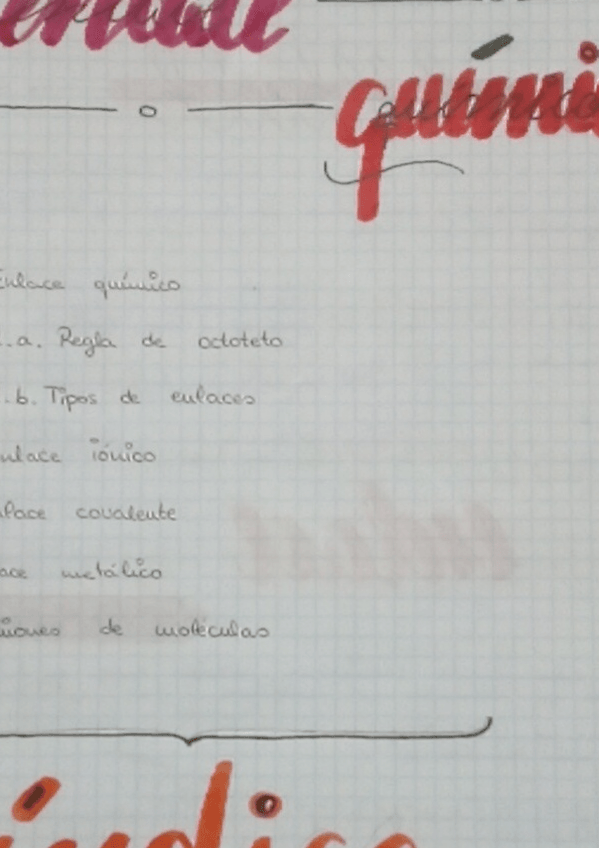 enlace
química
Enlace químico
.a. Regla de octoteto
.b. Tipos de enlaces
nlace iónico
lace covalente
ace metálico
niones de moléculas
índice